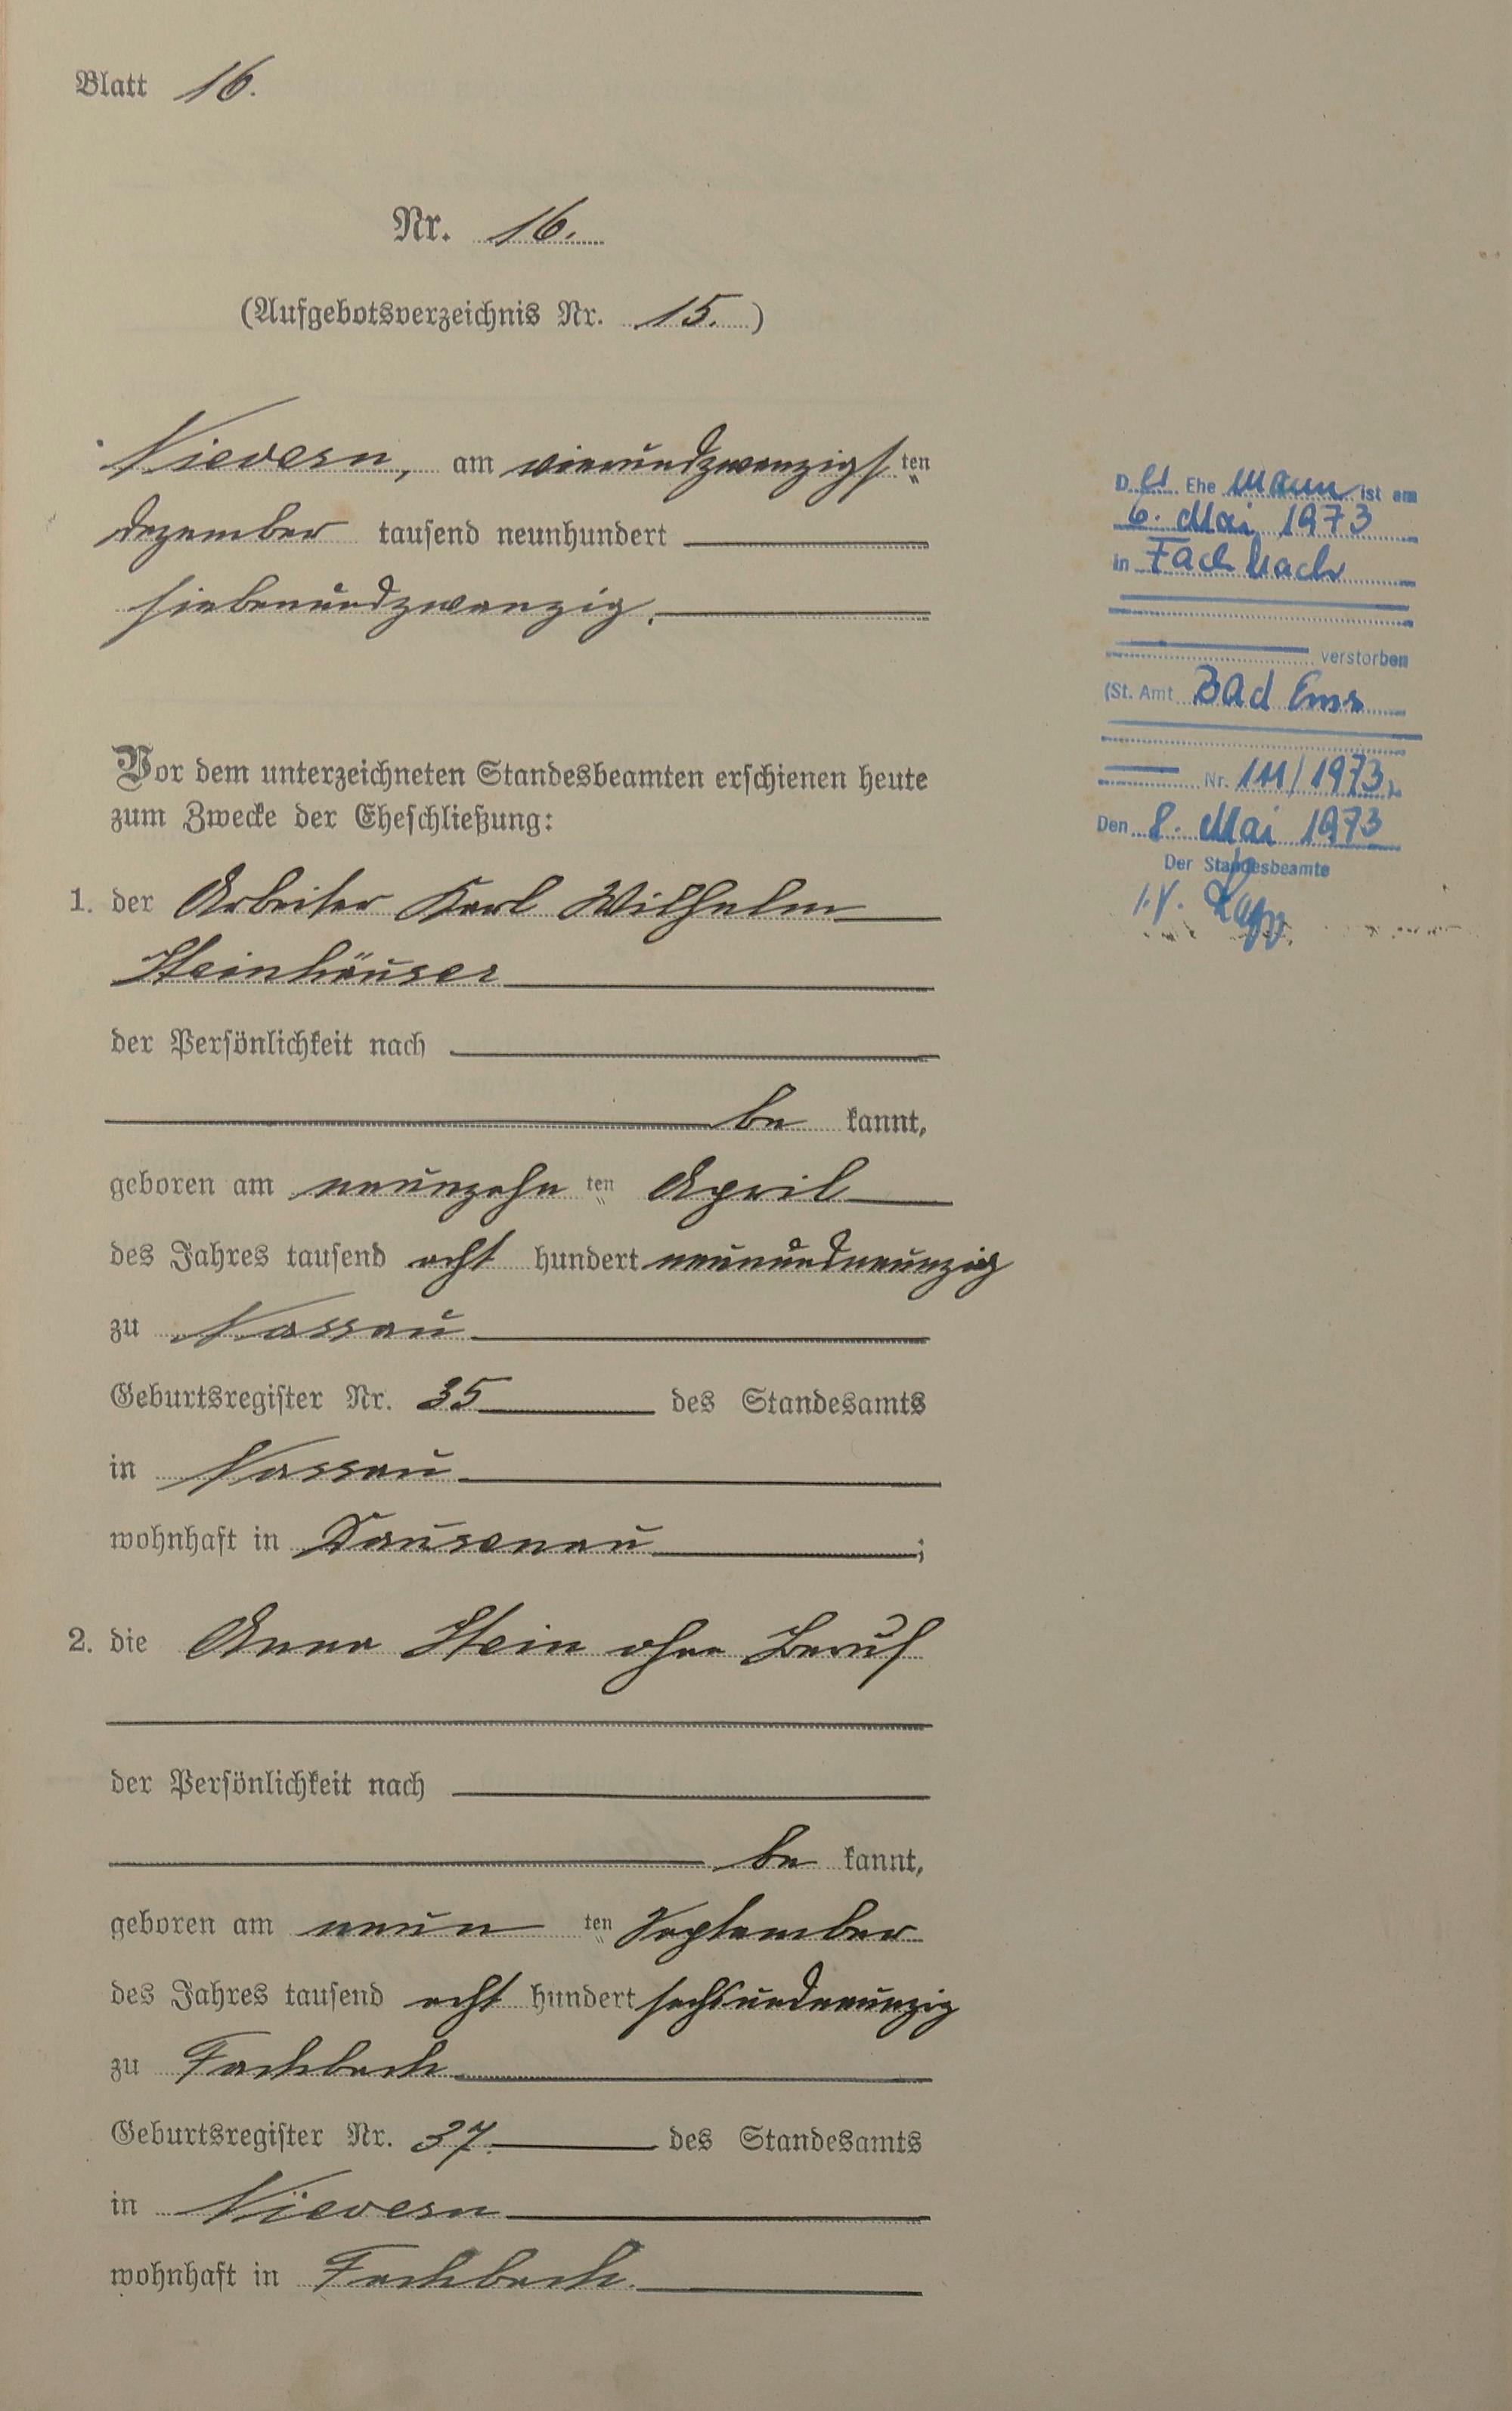 Blatt 16.
Nr. 16.
(Aufgebotsverzeichnis Nr. 15.)
Nievern, am vierundzwanzigsten
Dezember tausend neunhundert
siebenundzwanzig.
Vor dem unterzeichneten Standesbeamten erschienen heute
zum Zwecke der Eheschließung:
1. der Arbeiter Karl Wilhelm
Steinhäuser
der Persönlichkeit nach
be kannt,
geboren am neunzehn ten April
des Jahres tausend acht hundert neunundneunzig
zu Nassau
Geburtsregister Nr. 35 des Standesamts
in Nassau
wohnhaft in Dausenau;
2. die Anna Stein ohne Beruf
der Persönlichkeit nach
be kannt,
geboren am neun ten September
des Jahres tausend acht hundert sechsundneunzig
zu Fachbach
Geburtsregister Nr. 37. des Standesamts
in Nievern
wohnhaft in Fachbach.
Der Ehemann ist am
6. Mai 1973
in Fachbach
verstorben
(St. Amt Bad Ems
Nr. 111/1973)
Den 8. Mai 1973
Der Standesbeamte
I.V.